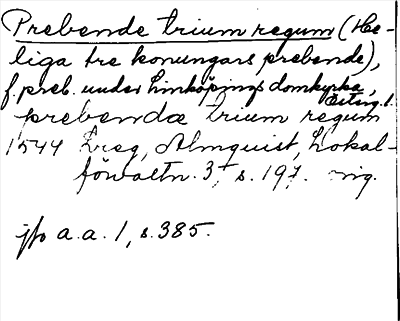 Prebende trium regum (He-
liga tre konungars prebende),
f. preb. under Linköpings domkyrka,
Östg. l.
prebendæ trium regum
1544 Lreg, Almquist, Lokal-
förvaltn. 3, s. 197.
jfr a.a. 1, s. 385.